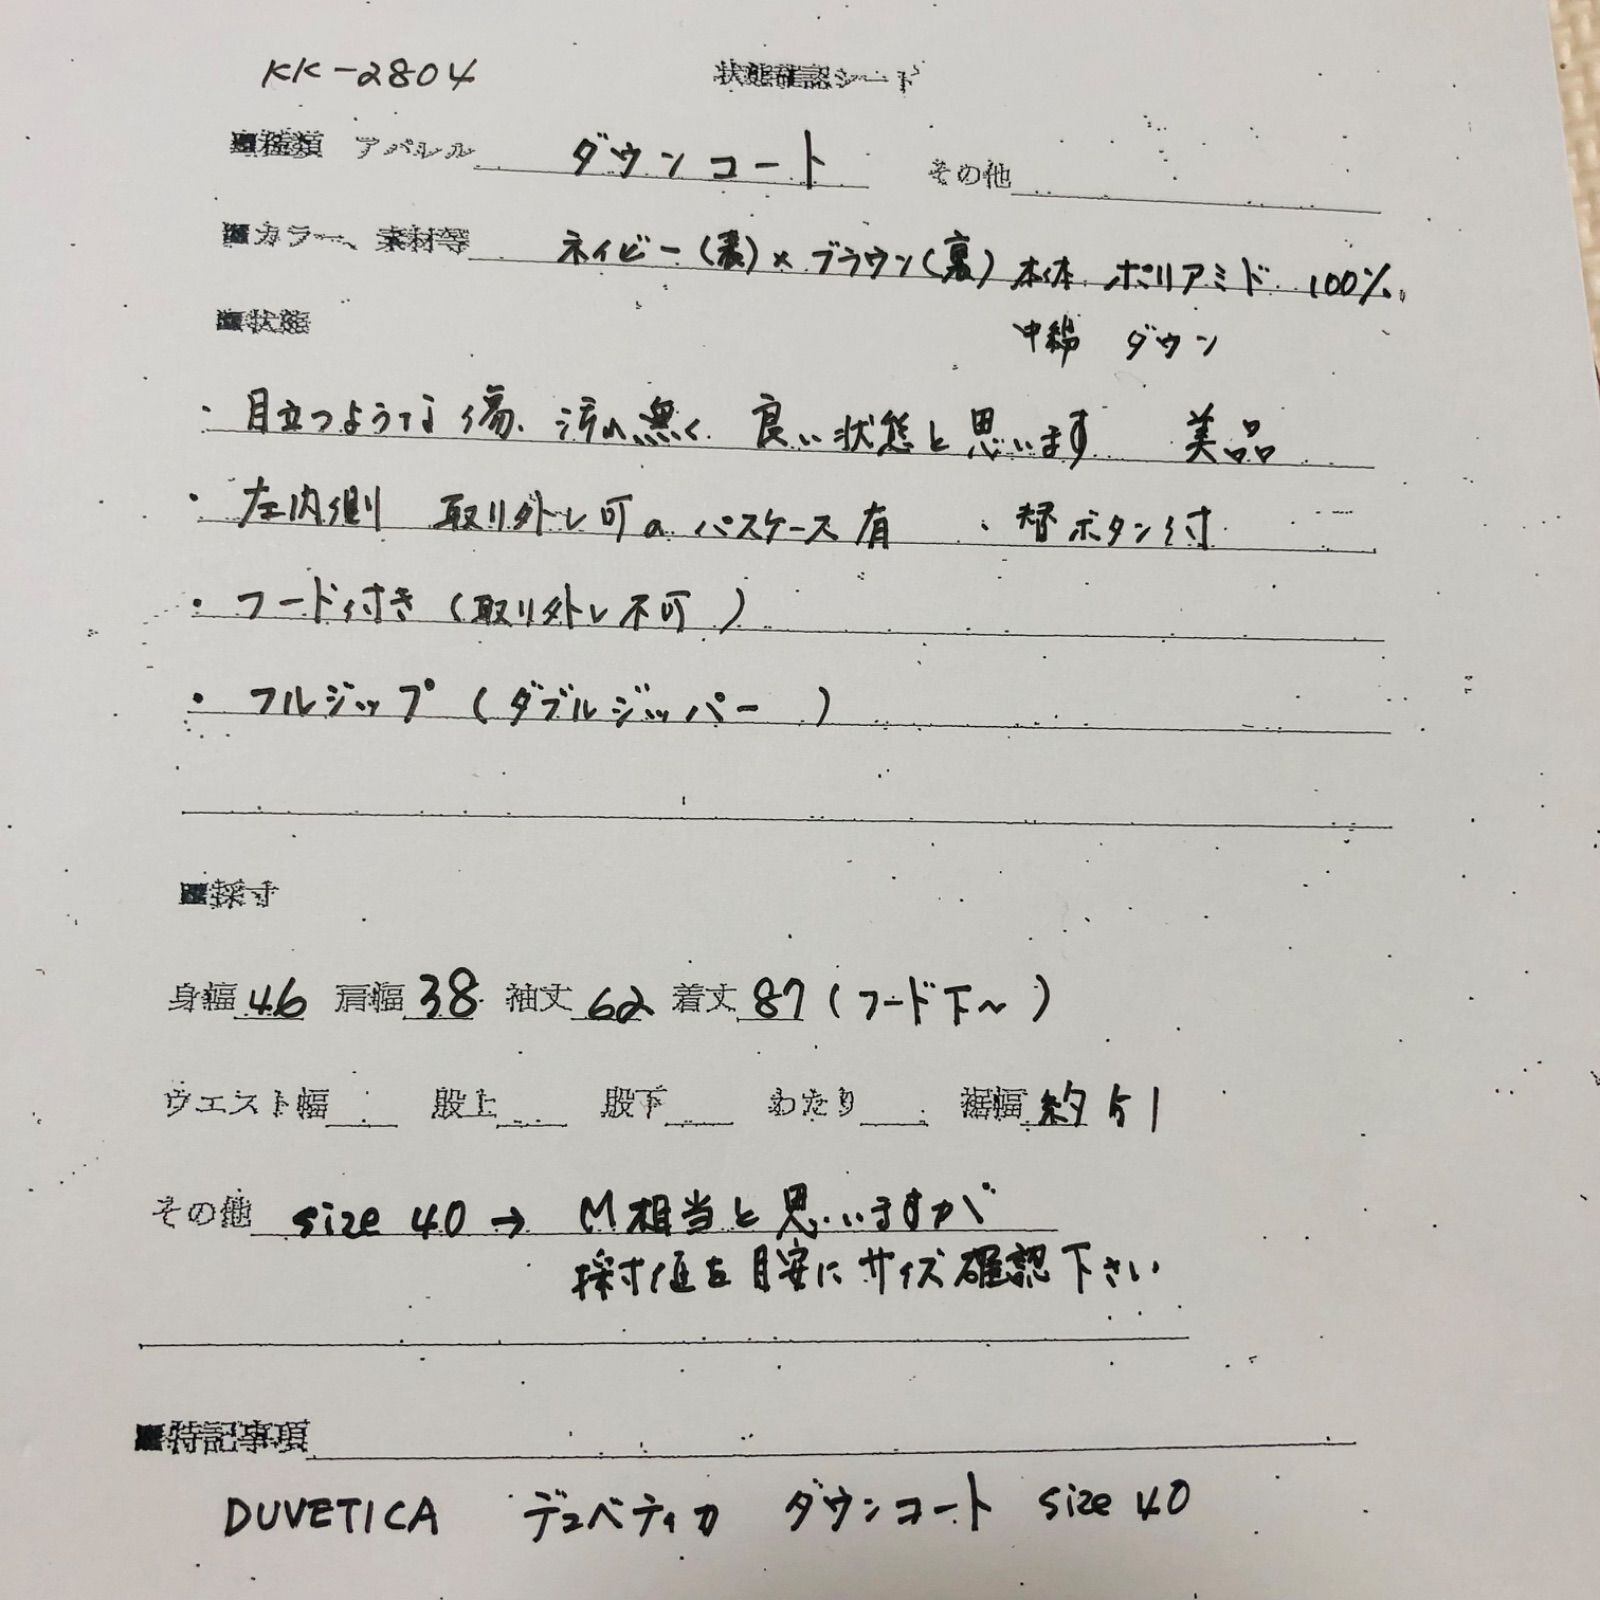 KK-2804 状態確認シート
■種類 アパレル ダウンコート その他
■カラー、素材等 ネイビー(表)×ブラウン(裏) 本体 ポリアミド 100%
■状態 中綿 ダウン
・目立つような傷、汚れ無く 良い状態と思います 美品
・左内側 取り外し可のパスケース有 ・替ボタン付
・フード付き(取り外し不可)
・フルジップ(ダブルジッパー)
■採寸
身幅46 肩幅38 袖丈62 着丈87(フード下〜)
ウエスト幅 股上 股下 わたり 裾幅 約51
その他 size 40 → M相当と思いますが
採寸値を目安にサイズ確認下さい
■特記事項
DUVETICA デュベティカ ダウンコート size 40